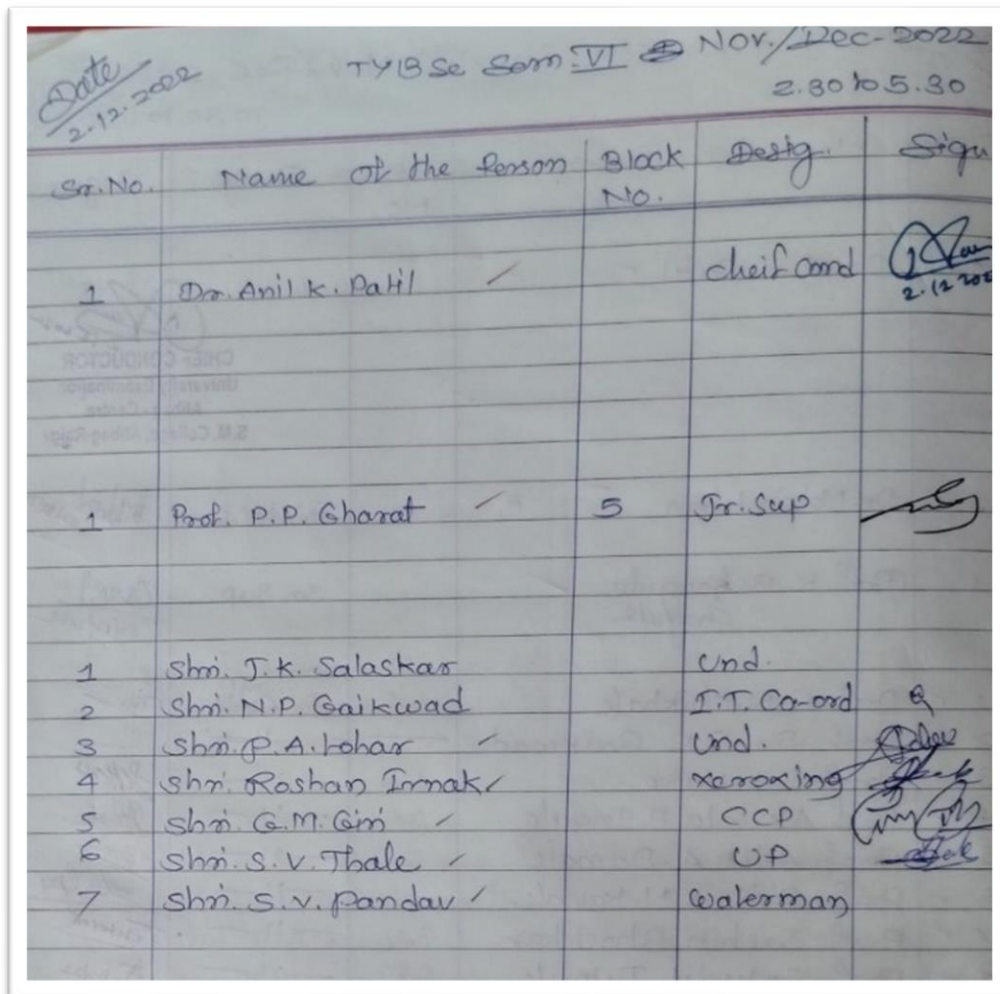 Date
2.12.2022
TYBSc Sem VI Nov./Dec-2022
2.30 to 5.30
Sr.No. Name of the Person Block No. Desig. Sign
1 Dr. Anil K. Patil cheif cond
2.12 202
1 Prof. P.P. Gharat 5 Jr. Sup
1 Shri. J.K. Salaskar Cnd.
2 Shri. N.P. Gaikwad I.T. Co-ord
3 Shri. P.A. Lohar Cnd.
4 Shri. Roshan Irmak xeroxing
5 Shri. G.M. Giri CCP
6 Shri. S.V. Thale UP
7 Shri. S.V. Pandav waterman
CHIEF CONDUCTOR